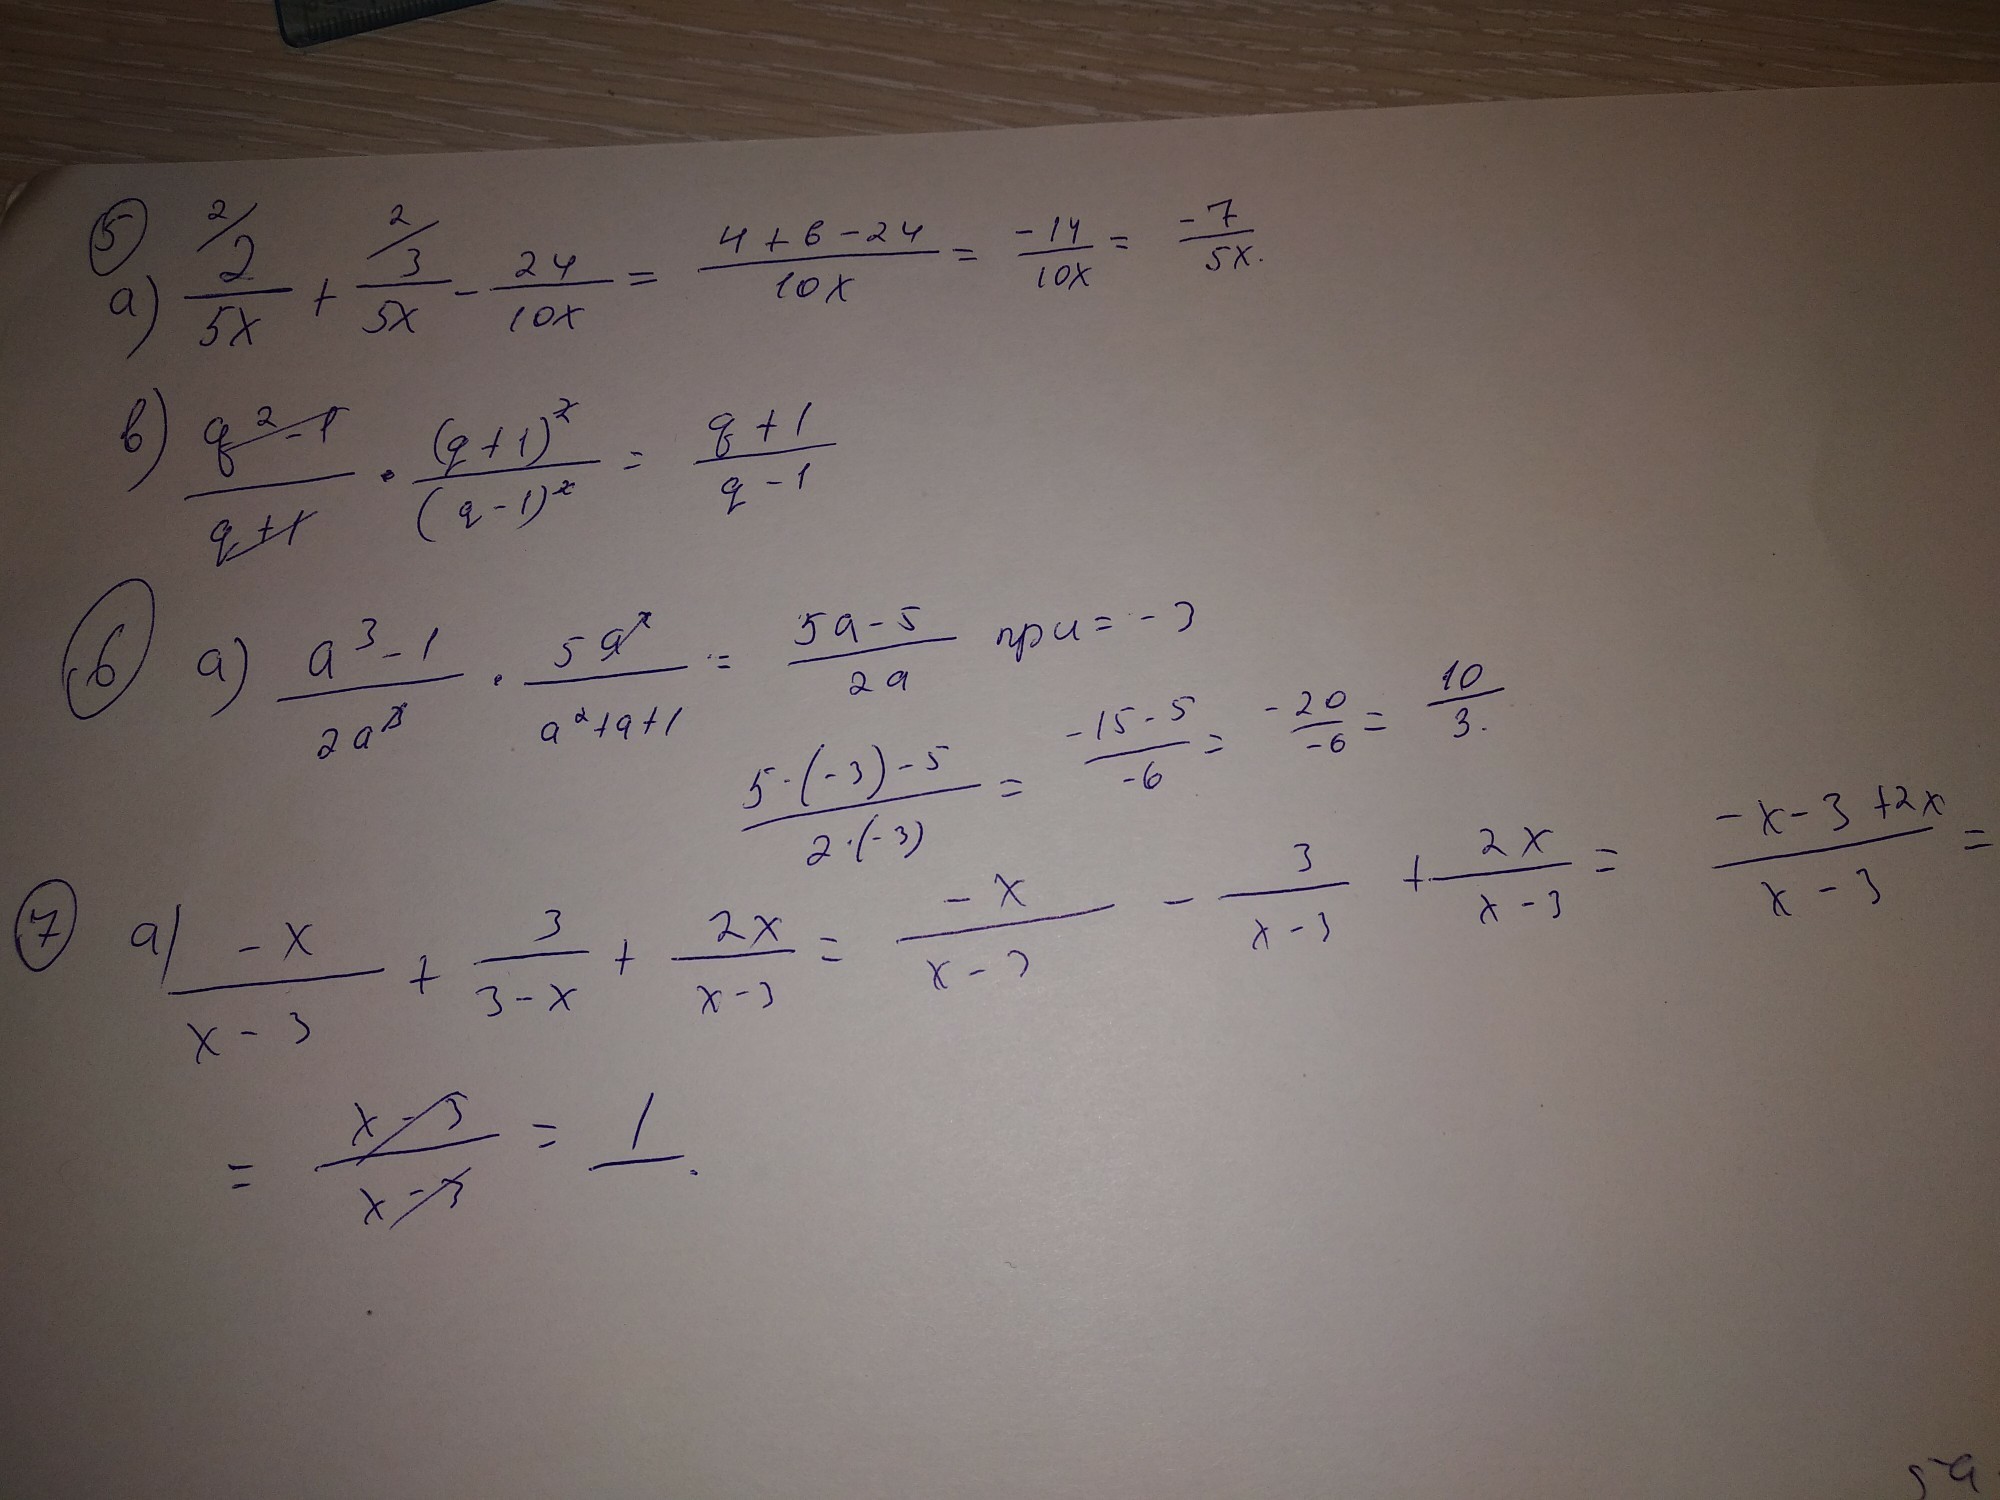 5
a) 2/ 2/5x + 2/ 3/5x - 24/10x = (4+6-24)/10x = -14/10x = -7/5x.
в) (q²-1)/(q+1) · (q+1)²/(q-1)² = (q+1)/(q-1)
6 a) (a³-1)/2a³ · 5a²/(a²+a+1) = (5a-5)/2a при = -3
(5·(-3)-5)/(2·(-3)) = (-15-5)/-6 = -20/-6 = 10/3.
7 a) -x/(x-3) + 3/(3-x) + 2x/(x-3) = -x/(x-3) - 3/(x-3) + 2x/(x-3) = (-x-3+2x)/(x-3) =
= (x-3)/(x-3) = 1.